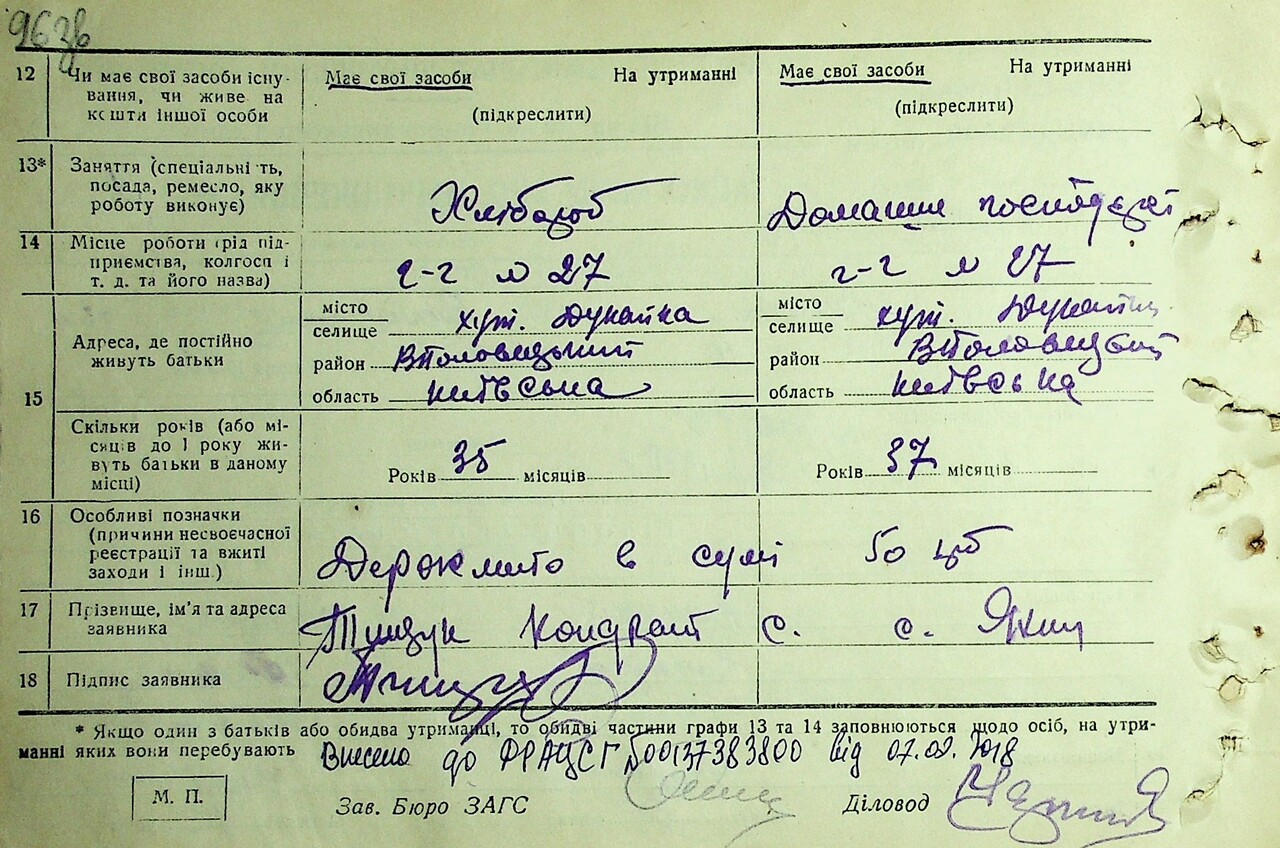 963в
12 Чи має свої засоби існу- Має свої засоби На утриманні Має свої засоби На утриманні
вання, чи живе на (підкреслити) (підкреслити)
кошти іншої особи
13* Заняття (спеціальність,
посада, ремесло, яку Хлібороб Домашня господарка
роботу виконує)
14 Місце роботи (рід під-
приємства, колгосп і г-г № 27 г-г № 27
т. д. та його назва)
15 Адреса, де постійно живуть батьки
місто
селище хут. Дунайка
район Володарський
область Київська
місто
селище хут. Дунайка
район
область Київська
Скільки років (або мі-
сяців до 1 року жи-
вуть батьки в даному Років 35 місяців Років 37 місяців
місці)
16 Особливі позначки
(причини несвоєчасної
реєстрації та вжиті Держмито в сумі 50 крб
заходи і інш.)
17 Прізвище, ім'я та адреса
заявника Тищук Кондрат с. с.
18 Підпис заявника Тищук
* Якщо один з батьків або обидва утриманці, то обидві частини графи 13 та 14 заповнюються щодо осіб, на утри-
манні яких вони перебувають
Внесено до ФРАЦСГ 00137383800 від 07.02.2018
М. П. Зав. Бюро ЗАГС Діловод